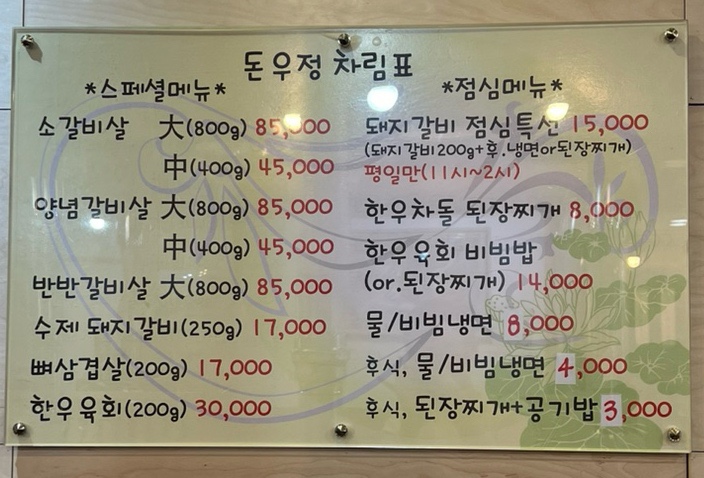 돈우정 차림표
*스페셜메뉴*
소갈비살 大(800g) 85,000
中(400g) 45,000
양념갈비살 大(800g) 85,000
中(400g) 45,000
반반갈비살 大(800g) 85,000
수제 돼지갈비(250g) 17,000
뼈삼겹살(200g) 17,000
한우육회(200g) 30,000
*점심메뉴*
돼지갈비 점심특선 15,000
(돼지갈비200g+후.냉면or된장찌개)
평일만(11시~2시)
한우차돌 된장찌개 8,000
한우육회 비빔밥
(or.된장찌개) 14,000
물/비빔냉면 8,000
후식, 물/비빔냉면 4,000
후식, 된장찌개+공기밥 3,000